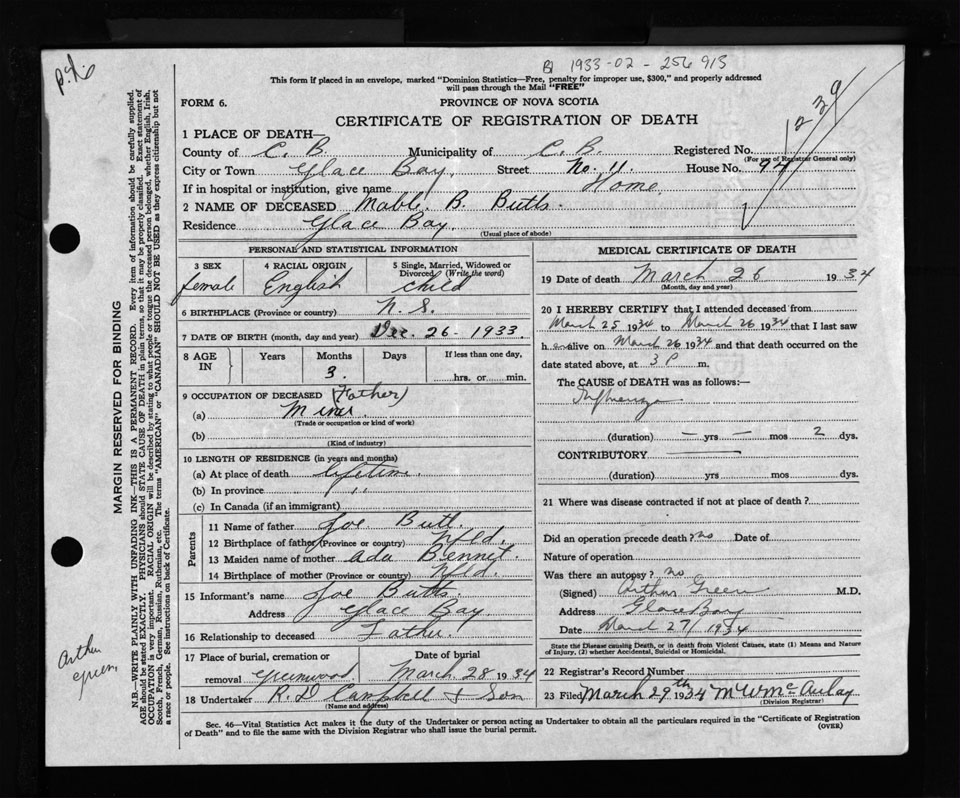 B 1933-02-256915
This form if placed in an envelope, marked "Dominion Statistics—Free, penalty for improper use, $300," and properly addressed
will pass through the Mail "FREE"
FORM 6.
PROVINCE OF NOVA SCOTIA
1239
CERTIFICATE OF REGISTRATION OF DEATH
1 PLACE OF DEATH—
County of C. B. Municipality of C. B. Registered No.
(For use of Registrar General only)
City or Town Glace Bay. Street No. 11. House No. 97
If in hospital or institution, give name Home.
2 NAME OF DECEASED Mable. B. Butts.
Residence Glace Bay.
(Usual place of abode)
PERSONAL AND STATISTICAL INFORMATION
3 SEX 4 RACIAL ORIGIN 5 Single, Married, Widowed or
Divorced (Write the word)
female English child
6 BIRTHPLACE (Province or country) N. S.
7 DATE OF BIRTH (month, day and year) Dec. 26 - 1933.
8 AGE IN Years Months Days If less than one day,
3. hrs. or min.
9 OCCUPATION OF DECEASED (Father)
(a) Miner.
(Trade or occupation or kind of work)
(b)
(Kind of industry)
10 LENGTH OF RESIDENCE (in years and months)
(a) At place of death lifetime.
(b) In province " "
(c) In Canada (if an immigrant)
Parents
11 Name of father Joe Butt.
12 Birthplace of father (Province or country) Nfld.
13 Maiden name of mother Ada Bennet.
14 Birthplace of mother (Province or country) Nfld.
15 Informant's name Joe Butts.
Address Glace Bay
16 Relationship to deceased Father.
17 Place of burial, cremation or Date of burial
removal Greenwood March 28. 1934
18 Undertaker R. D Campbell & Son
(Name and address)
MEDICAL CERTIFICATE OF DEATH
19 Date of death March 26 1934
(Month, day and year)
20 I HEREBY CERTIFY that I attended deceased from
March 25 1934 to March 26 1934 that I last saw
h er alive on March 26 1934 and that death occurred on the
date stated above, at 3 P. m.
The CAUSE of DEATH was as follows:—
Influenza
(duration) — yrs — mos 2 dys.
CONTRIBUTORY
(duration) yrs. mos dys.
21 Where was disease contracted if not at place of death?
Did an operation precede death? no Date of
Nature of operation
Was there an autopsy? no
(Signed) Arthur Green M.D.
Address Glace Bay
Date March 27/1934
State the Disease causing Death, or in death from Violent Causes, state (1) Means and Nature
of Injury, (2) whether Accidental, Suicidal or Homicidal.
22 Registrar's Record Number
23 Filed March 29th 1934 M W McAulay
(Division Registrar)
Sec. 46—Vital Statistics Act makes it the duty of the Undertaker or person acting as Undertaker to obtain all the particulars required in the "Certificate of Registration
of Death" and to file the same with the Division Registrar who shall issue the burial permit.
(OVER)
MARGIN RESERVED FOR BINDING
N.B.—WRITE PLAINLY WITH UNFADING INK—THIS IS A PERMANENT RECORD. Every item of information should be carefully supplied.
AGE should be stated EXACTLY. PHYSICIANS should STATE CAUSE OF DEATH in plain terms, so that it may be properly classified. Exact statement of
OCCUPATION is very important. RACIAL ORIGIN will be described by stating to what people or tongue the deceased person belonged, whether English, Irish,
Scotch, French, German, Russian, Ruthenian, etc. The terms "AMERICAN" or "CANADIAN" SHOULD NOT BE USED as they express citizenship but not
a race or people. See instructions on back of Certificate.
Arthur
Green